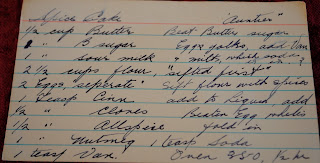 Spice Cake "Aunties"
1/2 cup Butter Beat Butter sugar,
1 " B sugar Egg yolks, add Van
1 " sour milk & milk, which soda
2 1/2 cups flour, "sifted first"
2 Eggs, seperate" Sift flour with spices
1 teasp Cinn add to Liquid add
1/2 " Cloves Beaten Egg whites
1/2 " Allspice fold in
1 " Nutmeg 1 teasp Soda
1 teasp Van. Oven 350, 1/2 hr